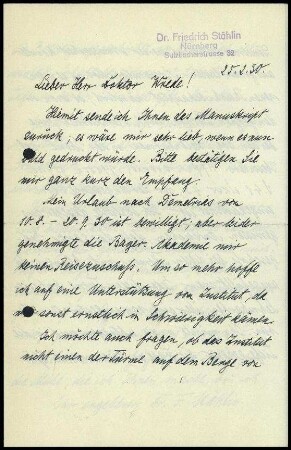 Dr. Friedrich Stählin
Nürnberg
25.2.30.
Lieber Herr Doktor Wrede!
Hiemit sende ich Ihnen das Manuskript
zurück, es wäre mir sehr lieb, wenn es nun
bald gedruckt würde. Bitte bestätigen Sie
mir ganz kurz den Empfang.
Mein Urlaub nach Demetrias von
10.8. – 20.9.30 ist bewilligt; aber leider
genehmigte die Bayer. Akademie mir
keinen Reisezuschuß. Um so mehr hoffe
ich auf eine Unterstützung vom Institut, da
wir sonst ernstlich in Schwierigkeit kämen.
Ich möchte auch fragen, ob das Institut
nicht einen der Türme auf dem Berge von